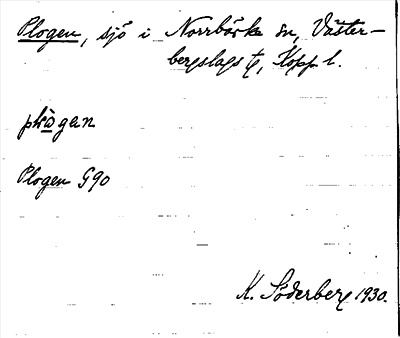 Plogen, sjö i Norrbärke sn, Väster-
bergslags tg, Kopp. l.
plògan
Plogen G90
K. Söderberg 1930.